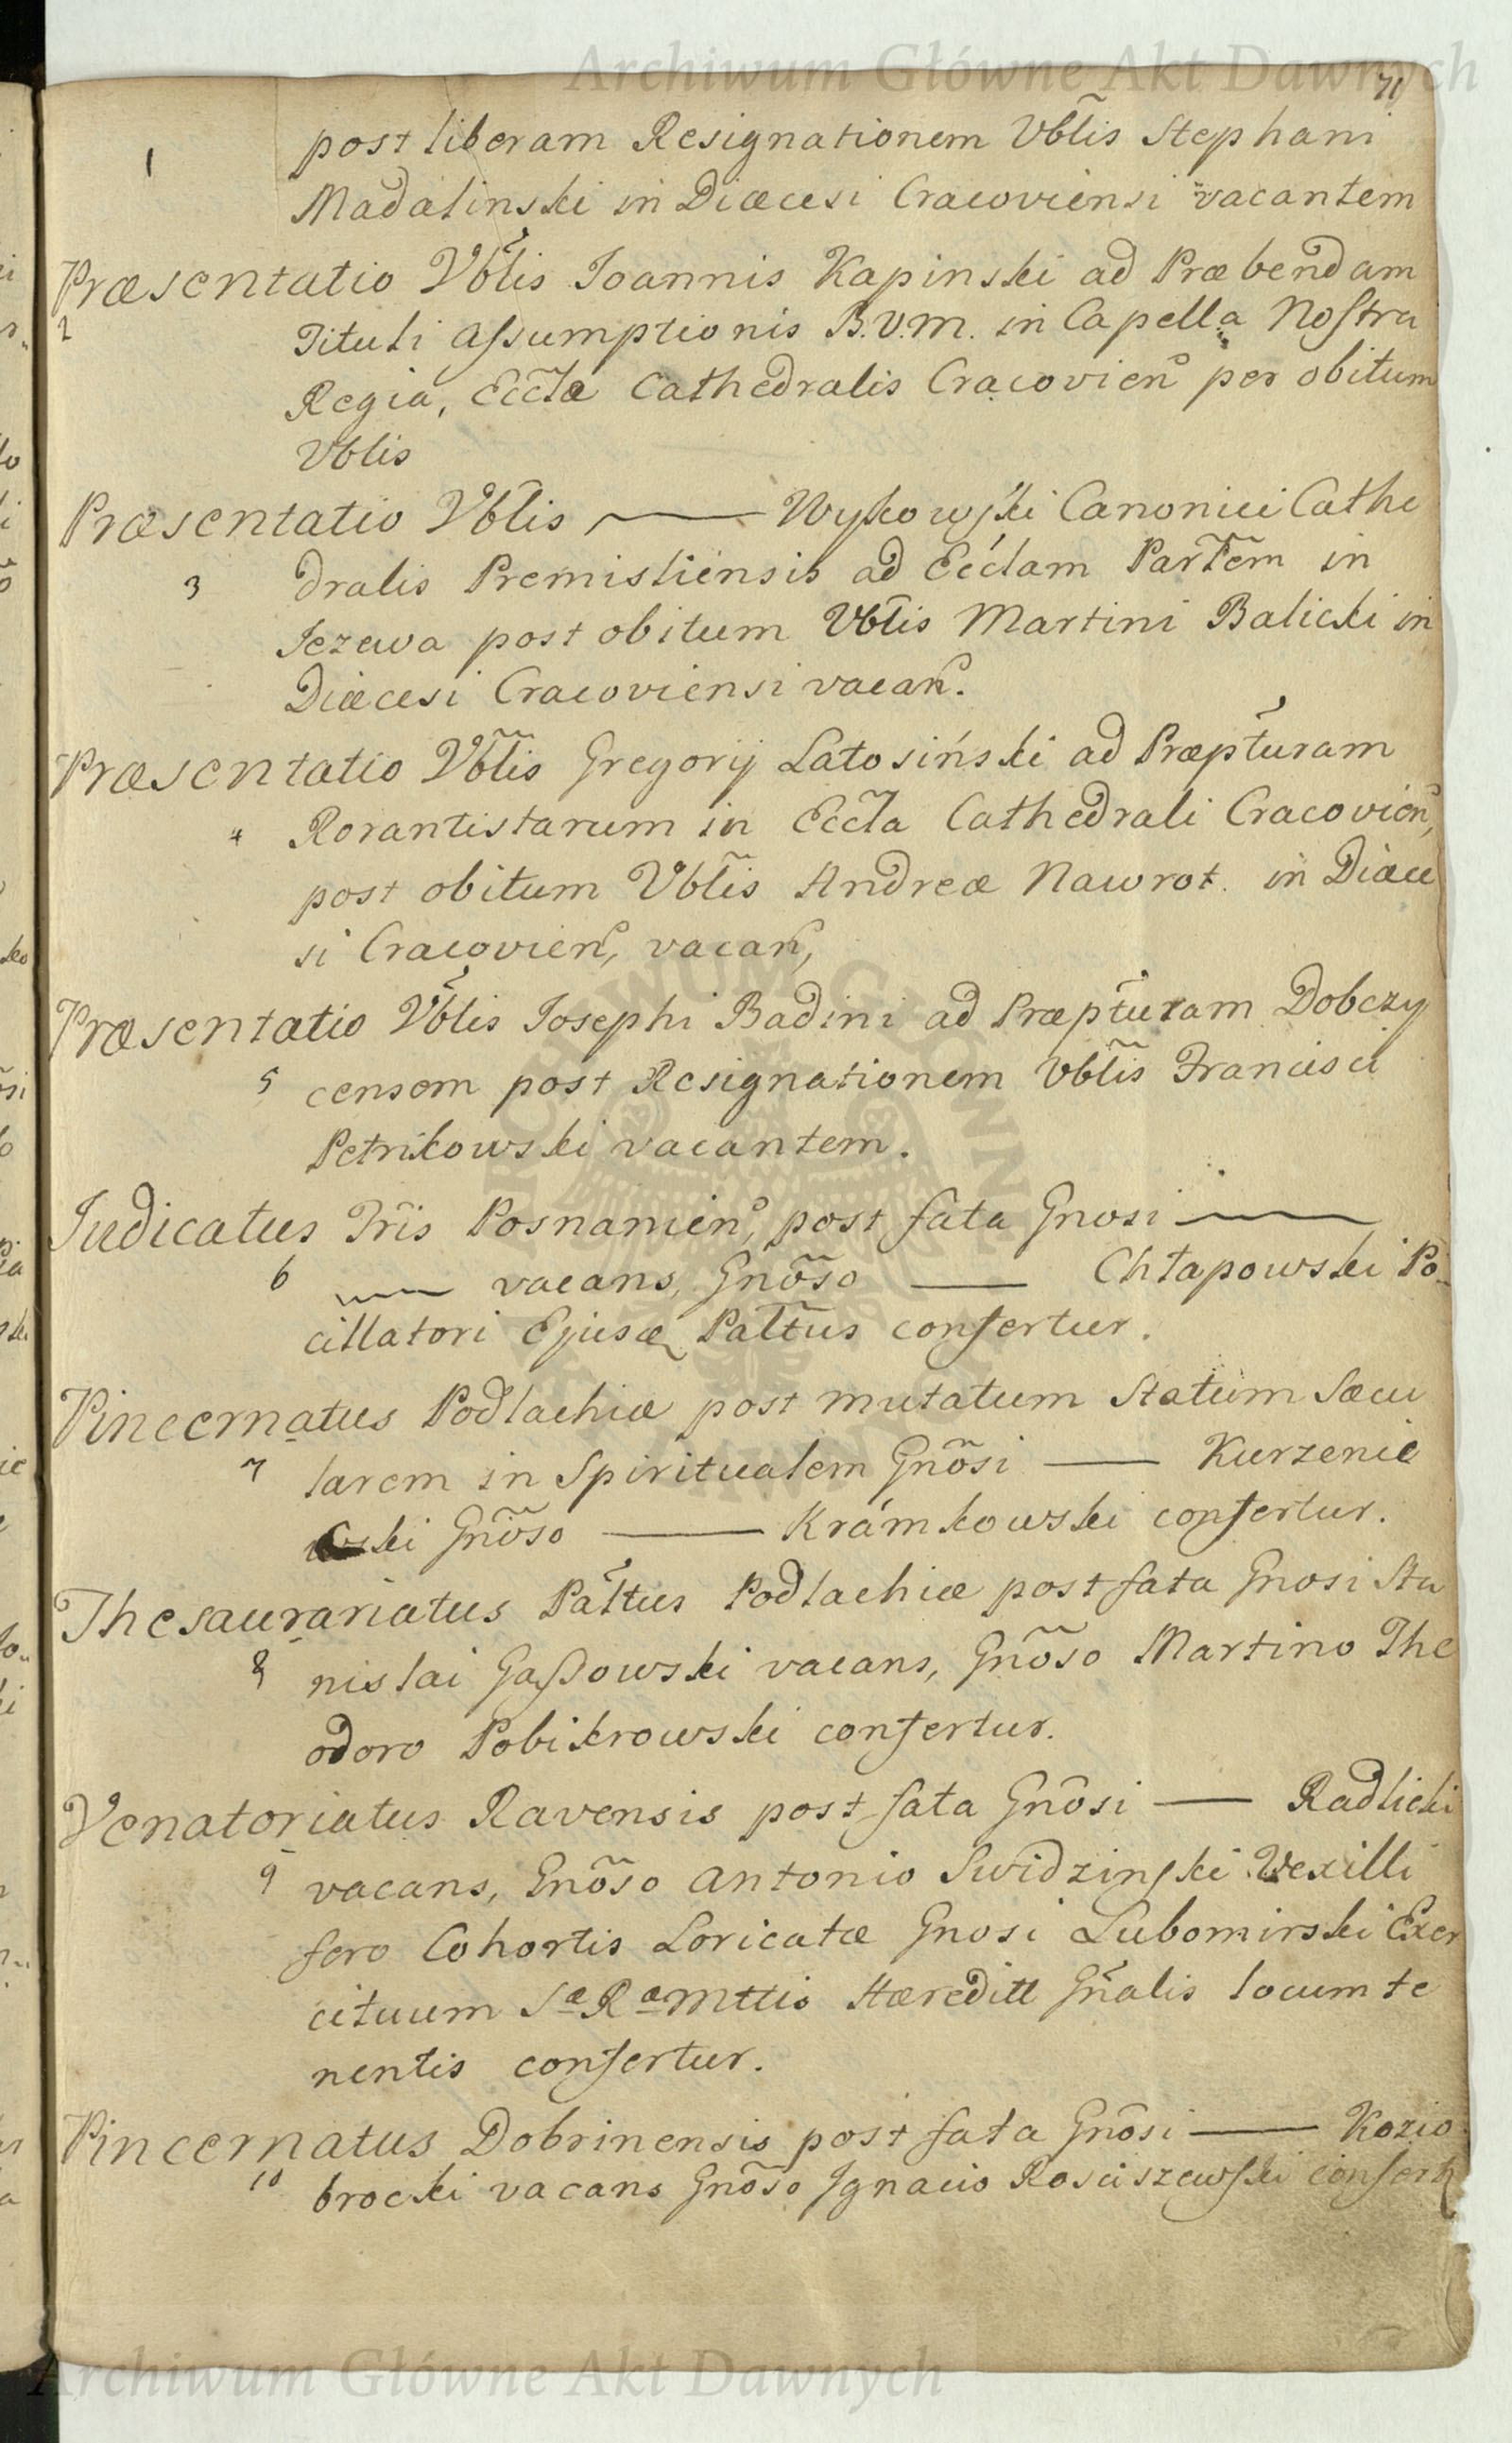 Archiwum Główne Akt Dawnych
71
post liberam Resignationem Vblis Stephani
1
Madalinski in Diæcesi Cracoviensi vacantem
Præsentatio Vblis Joannis Kapinski ad Præbendam
2
Tituli Assumptionis B.V.M. in Capella Nostra
Regia, Eccłæ Cathedralis Cracovien per obitum
Vblis
Præsentatio Vblis —— Wykowski Canonici Cathe
3 dralis Premisliensis ad Ecclam Partem in
Jezewa post obitum Vblis Martini Balicki in
Diæcesi Cracoviensi vacan.
Præsentatio Vblis Gregorij Latosiński ad Præpturam
4 Rorantistarum in Eccla Cathedrali Cracovien,
post obitum Vblis Andreæ Nawrot. in Diæce
si Cracovien, vacan,
Præsentatio Vblis Josephi Badini ad Præpturam Dobczy
5 censem post Resignationem Vblis Francisci
Petrikowski vacantem.
Judicatus Tris Posnanien, post fata Gnosi ——
6 —— vacans, Gnoso —— Chłapowski Po-
cillatori Ejusd Paltus confertur.
Pincernatus Podlachiæ post mutatum Statum Sæcu
7 larem in Spiritualem Gnosi —— Kurzenie
cki Gnoso —— Kramkowski confertur.
Thesaurariatus Paltus Podlachiæ post fata Gnosi Sta
8 nislai Gassowski vacans, Gnoso Martino The
odoro Pobikrowski confertur.
Venatoriatus Ravensis post fata Gnosi —— Radlicki
9 vacans, Gnoso Antonio Swidzinski Vexilli
fero Cohortis Loricatæ Gnosi Lubomirski Exer
cituum Sæ Ræ Mttis Hæreditt Gnalis locumte
nentis confertur.
Pincernatus Dobrinensis post fata Gnosi —— Kozio
10 brocki vacans Gnoso Ignacio Rosciszewski confert
Archiwum Główne Akt Dawnych